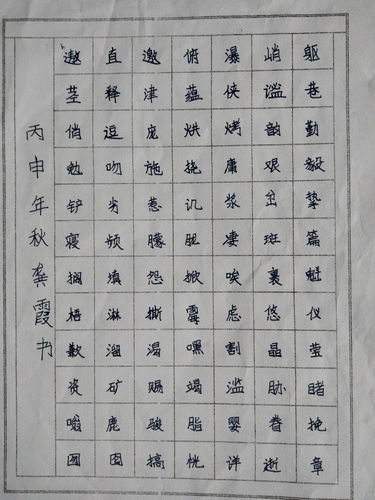 躯巷勤毅挚篇魁仪莹睹挽章
峭谧韵艰岔斑裹悠晶胁眷逝
瀑侠烤庸浆凄唉虑割滥婴详
俯蕴烘挠讥胧掀霉嘿竭脂恍
邀津庞施惹朦怨撕渴赐骏搞
直释逗吻劣频填淋溜矿鹿
遨茎俏勉铲寝搁梧歉资嗡
丙申年秋龚霞书